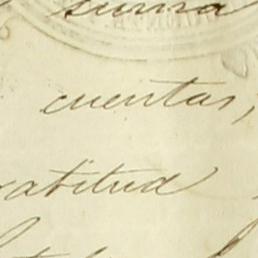 suma
cuentas,
ratitud